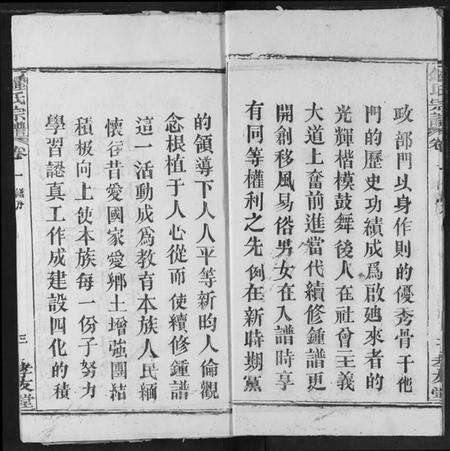 政部門以身作則的優秀骨干他
門的歷史功績成爲啟廸來者的
光輝楷模鼓舞後人在社會主義
大道上奮前進當代續修鍾譜更
開創移風易俗男女在入譜時享
有同等權利之先例在新時期黨
的領導下人人平等新的人倫觀
念根植于人心從而使續修鍾譜
這一活動成爲教育本族人民緬
懷往昔愛國家愛鄉土增強團結
積極向上使本族每一份子努力
學習認真工作成建設四化的積
氏宗譜
卷一
三
孝友堂